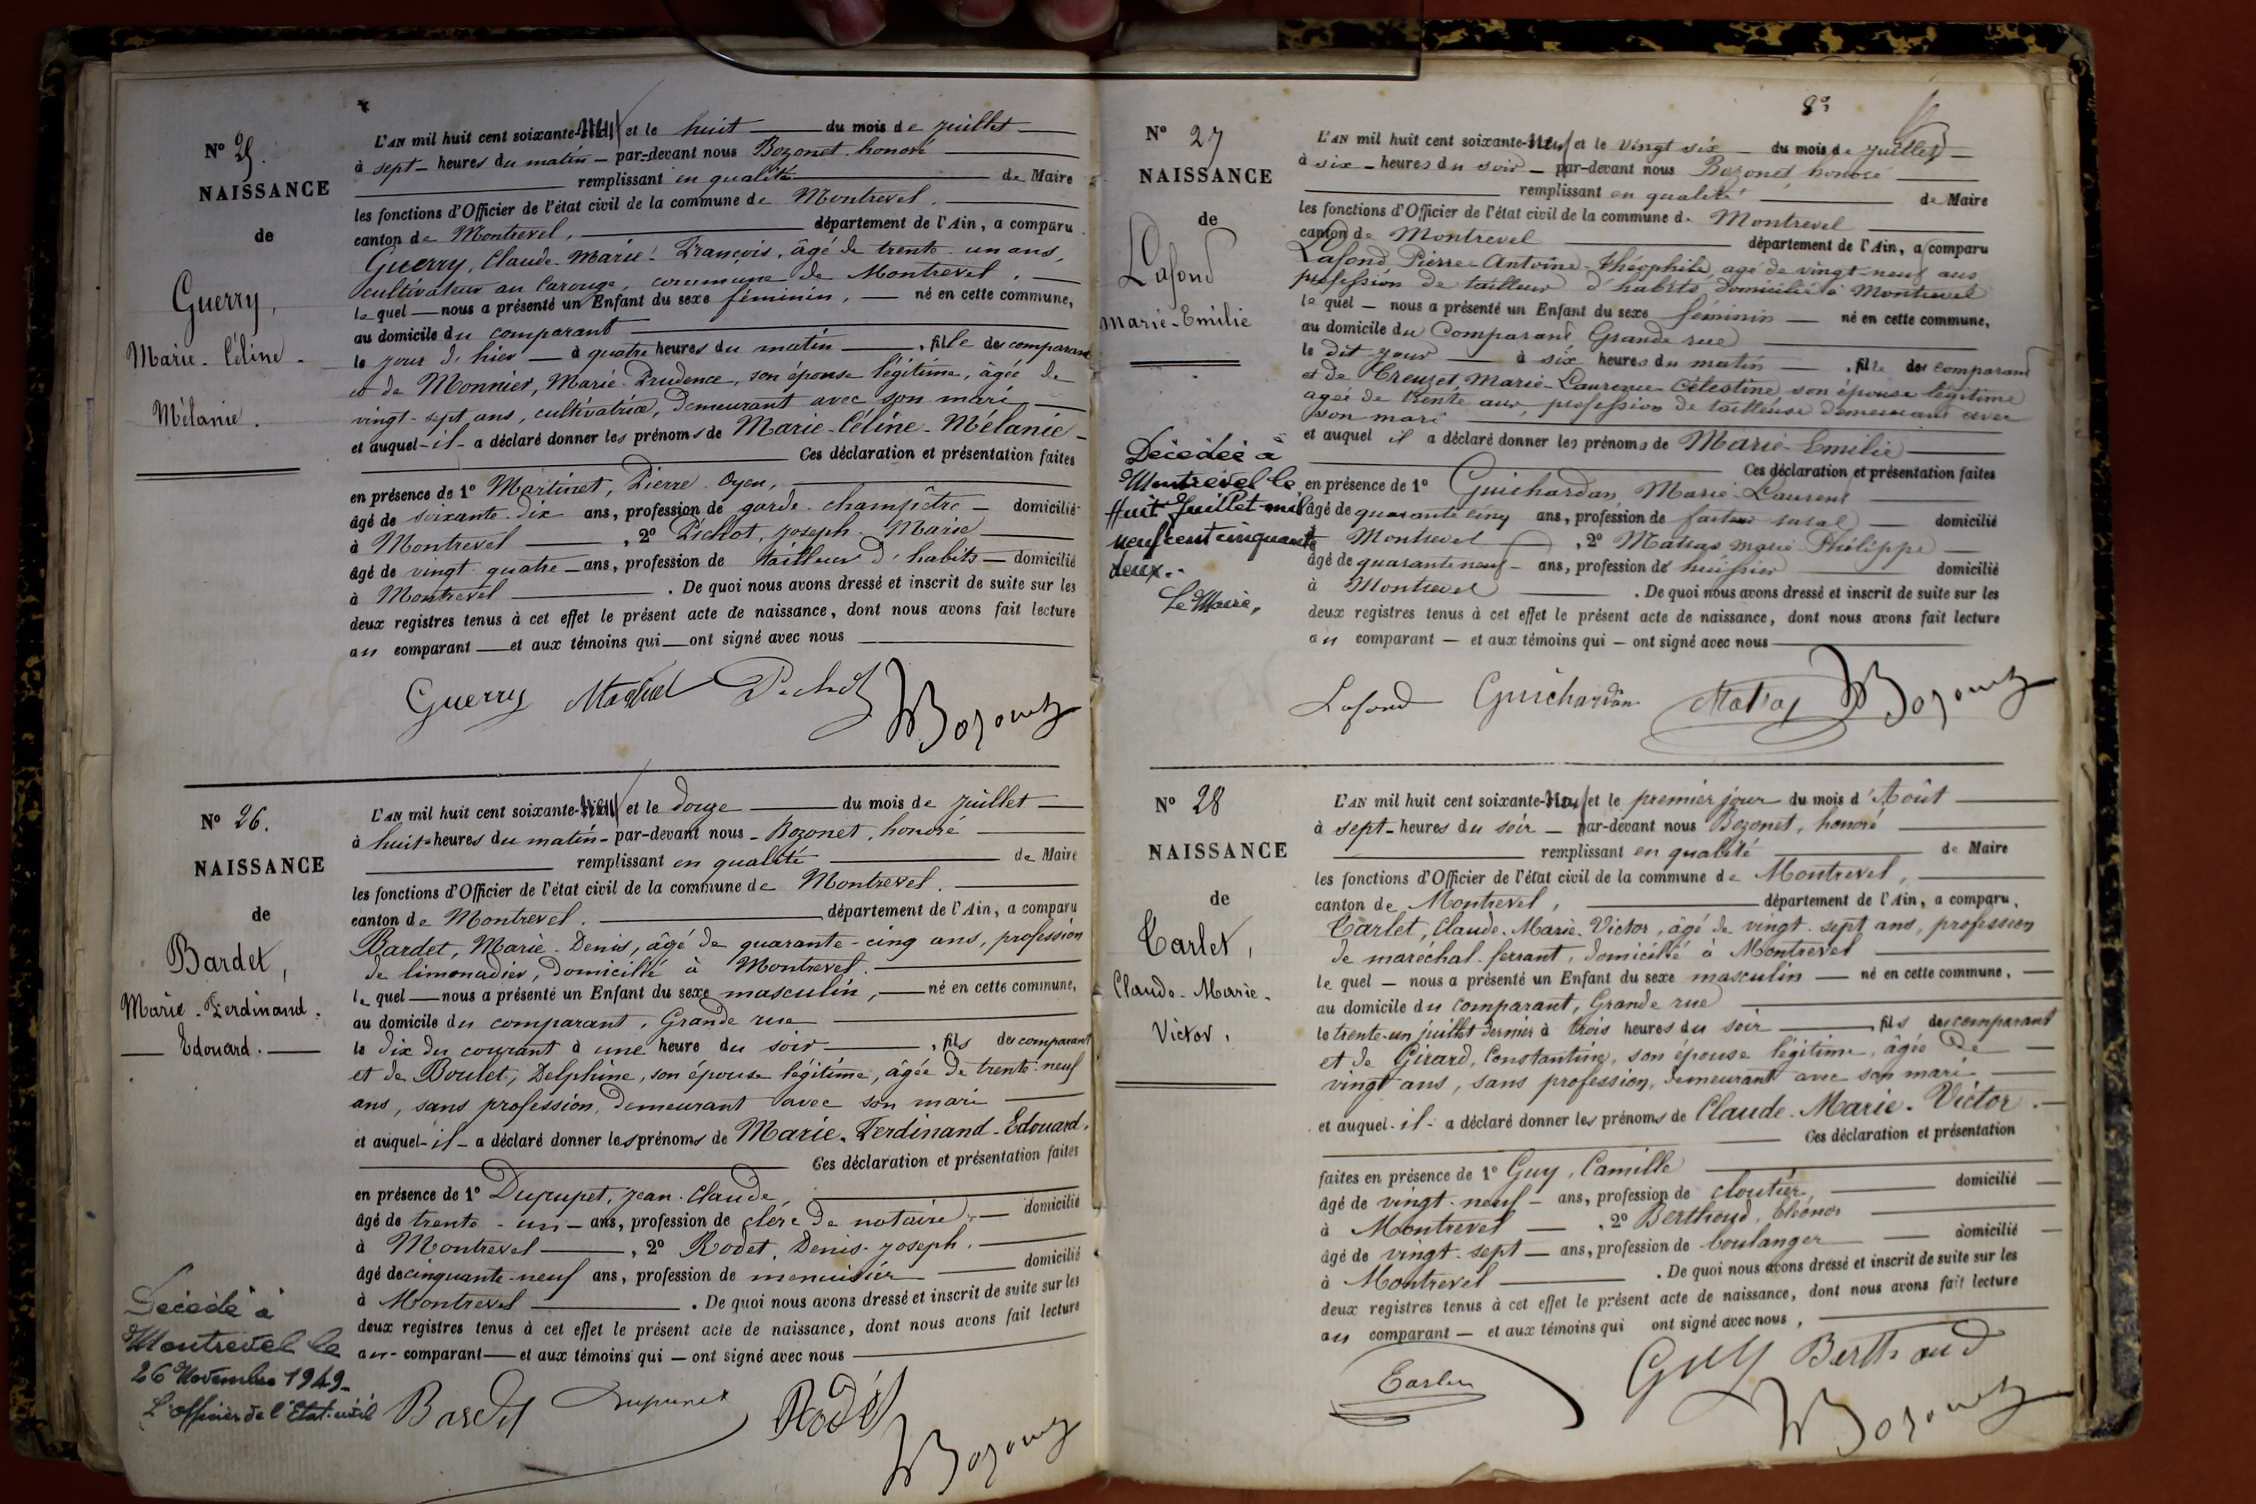 N° 25.
NAISSANCE
de
Guerry,
Marie-Céline-
Mélanie.
L'AN mil huit cent soixante-neuf et le huit du mois de juillet
à sept heures du matin par-devant nous Bozonet, honoré
remplissant en qualité de Maire
les fonctions d'Officier de l'état civil de la commune de Montrevel.
canton de Montrevel, département de l'Ain, a comparu
Guerry, Claude-Marie-François, âgé de trente-un ans,
cultivateur au Carouge, commune de Montrevel.
lequel nous a présenté un Enfant du sexe féminin, né en cette commune,
au domicile du comparant
le jour d'hier à quatre heures du matin, fille des comparant
et de Monnier, Marie-Prudence, son épouse légitime, âgée de
vingt-sept ans, cultivatrice, demeurant avec son mari
et auquel il a déclaré donner les prénoms de Marie-Céline-Mélanie
Ces déclaration et présentation faites
en présence de 1° Martinet, Pierre Oyen,
âgé de soixante-dix ans, profession de garde-champêtre domicilié
à Montrevel, 2° Pichot, Joseph-Marie
âgé de vingt-quatre ans, profession de tailleur d'habits domicilié
à Montrevel. De quoi nous avons dressé et inscrit de suite sur les
deux registres tenus à cet effet le présent acte de naissance, dont nous avons fait lecture
au comparant et aux témoins qui ont signé avec nous
Guerry Pichot Bozonet
N° 26.
NAISSANCE
de
Bardet,
Marie-Ferdinand-
Edouard.
L'AN mil huit cent soixante-neuf et le douze du mois de juillet
à huit heures du matin par-devant nous Bozonet, honoré
remplissant en qualité de Maire
les fonctions d'Officier de l'état civil de la commune de Montrevel.
canton de Montrevel. département de l'Ain, a comparu
Bardet, Marie-Denis, âgé de quarante-cinq ans, profession
de limonadier, domicilié à Montrevel.
lequel nous a présenté un Enfant du sexe masculin, né en cette commune,
au domicile du comparant, Grande rue
le dix du courant à une heure du soir, fils des comparant
et de Boulet, Delphine, son épouse légitime, âgée de trente-neuf
ans, sans profession, demeurant avec son mari
et auquel il a déclaré donner les prénoms de Marie-Ferdinand-Edouard.
Ces déclaration et présentation faites
en présence de 1° Dupupet, Jean-Claude,
âgé de trente-un ans, profession de clerc de notaire, domicilié
à Montrevel, 2° Rodet, Denis-Joseph.
âgé de cinquante-neuf ans, profession de menuisier domicilié
à Montrevel. De quoi nous avons dressé et inscrit de suite sur les
deux registres tenus à cet effet le présent acte de naissance, dont nous avons fait lecture
au comparant et aux témoins qui ont signé avec nous
Décédé à
Montrevel le
26 Novembre 1949.
L'Officier de l'Etat-civil
Bardet Dupupet Rodet
Bozonet
8°
N° 27
NAISSANCE
de
Lafond
Marie-Emilie
Décédée à
Montrevel le
Huit Juillet mil
neuf cent cinquante
deux.-
Le Maire,
L'AN mil huit cent soixante-neuf et le vingt six du mois de juillet
à six heures du soir par-devant nous Bozonet, honoré
remplissant en qualité de Maire
les fonctions d'Officier de l'état civil de la commune de Montrevel
canton de Montrevel département de l'Ain, a comparu
Lafond Pierre-Antoine-Théophile, agé de vingt-neuf ans
profession de tailleur d'habits domicilié à Montrevel
lequel nous a présenté un Enfant du sexe féminin né en cette commune,
au domicile du Comparant Grande rue
le dit jour à six heures du matin, fille des comparant
et de Creuzet, Marie-Laurence-Célestine son épouse légitime
agée de trente ans, profession de tailleuse demeurant avec
son mari
et auquel il a déclaré donner les prénoms de Marie-Emilie
Ces déclaration et présentation faites
en présence de 1° Guichardan Marie-Laurent
âgé de quarante cinq ans, profession de facteur rural domicilié
Montrevel, 2° Matras Marie Philippe
âgé de quarante neuf ans, profession de huissier domicilié
à Montrevel. De quoi nous avons dressé et inscrit de suite sur les
deux registres tenus à cet effet le présent acte de naissance, dont nous avons fait lecture
au comparant et aux témoins qui ont signé avec nous
Lafond Guichardan Matras Bozonet
N° 28
NAISSANCE
de
Carlet,
Claude-Marie-
Victor.
L'AN mil huit cent soixante-neuf et le premier jour du mois d'Août
à sept heures du soir par-devant nous Bozonet, honoré
remplissant en qualité de Maire
les fonctions d'Officier de l'état civil de la commune de Montrevel,
canton de Montrevel, département de l'Ain, a comparu,
Carlet, Claude-Marie-Victor, âgé de vingt-sept ans, profession
de maréchal-ferrant, domicilié à Montrevel
lequel nous a présenté un Enfant du sexe masculin né en cette commune,
au domicile du comparant, Grande rue
le trente-un juillet dernier à trois heures du soir, fils des comparant
et de Girard, Constantine, son épouse légitime, âgée de
vingt ans, sans profession, demeurant avec son mari
et auquel il a déclaré donner les prénoms de Claude-Marie-Victor.
Ces déclaration et présentation
faites en présence de 1° Guy, Camille
âgé de vingt-neuf ans, profession de cloutier, domicilié
à Montrevel, 2° Berthoud, Eléonor
âgé de vingt-sept ans, profession de boulanger domicilié
à Montrevel. De quoi nous avons dressé et inscrit de suite sur les
deux registres tenus à cet effet le présent acte de naissance, dont nous avons fait lecture
au comparant et aux témoins qui ont signé avec nous,
Carlet Guy Berthoud
Bozonet